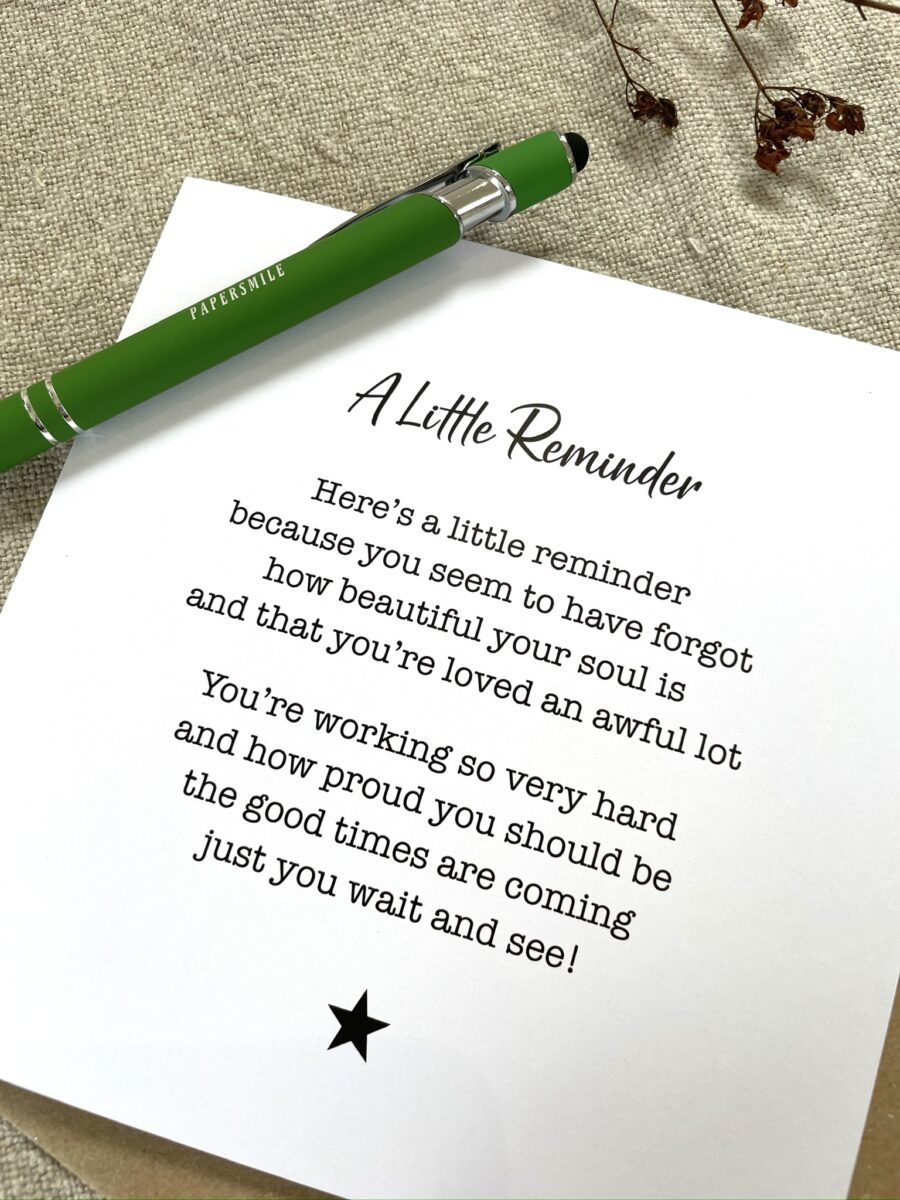 PAPERSMILE
A Little Reminder
Here's a little reminder
because you seem to have forgot
how beautiful your soul is
and that you're loved an awful lot
You're working so very hard
and how proud you should be
the good times are coming
just you wait and see!